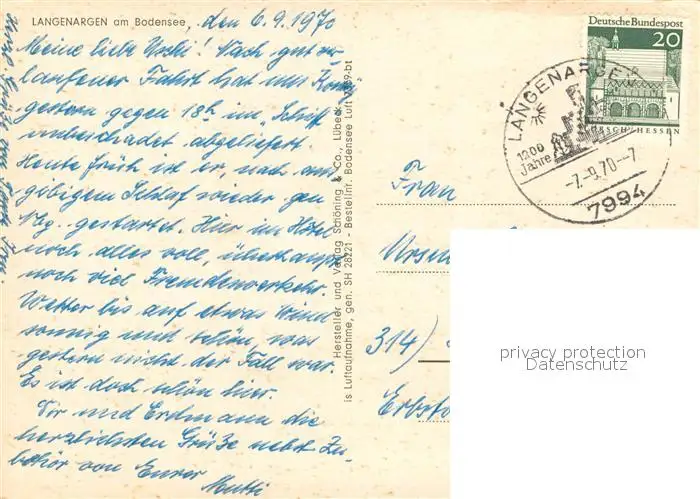 LANGENARGEN am Bodensee, den 6.9.1970
Meine liebe Uschi! Nach gut ver-
laufener Fahrt hat uns
gestern gegen 18h im "Schiff"
unbeschadet abgeliefert.
Heute früh ist er, nach aus-
gebigem Schlaf wieder gen
Nbg. gestartet. Hier im Hotel
noch alles voll, überhaupt
noch viel Fremdenverkehr.
Wetter bis auf etwas Wind
sonnig und schön, was
gestern nicht der Fall war.
Es ist doch schön hier.
Dir und Erdmann die
herzlichsten Grüße nebst Zu-
behör von Eurer
Mutti
Hersteller und Verlag Schöning & Co., Lübeck
is Luftaufnahme, gen. SH 28221 - Bestellnr. Bodensee Luft 1359-bt
Deutsche Bundespost
20
LORSCH/HESSEN
LANGENARGEN
1200
Jahre
-7.-9.70-7
7994
Frau
314)
privacy protection
Datenschutz